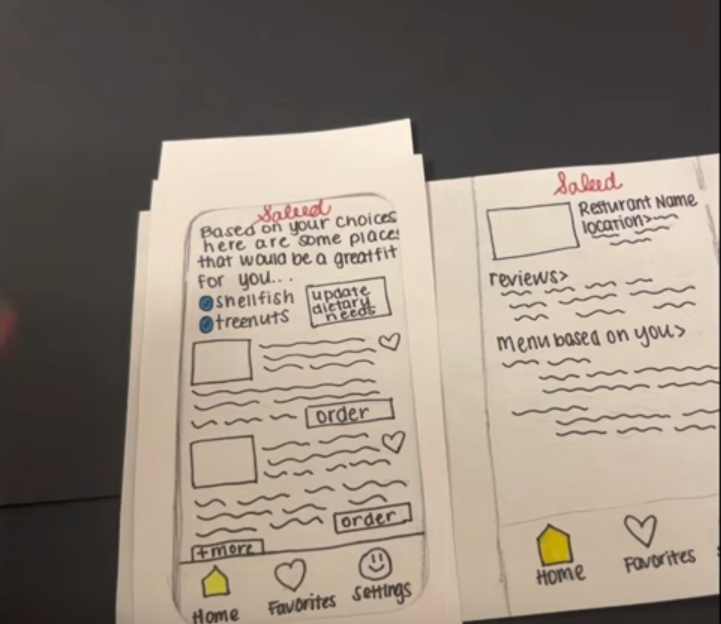 Saleed
Based on your choices
here are some places
that would be a great fit
for you...
shellfish
treenuts
update
dietary
needs
order
order
+more
Home
Favorites
Settings
Saleed
Resturant Name
location>
reviews>
menu based on you>
Home
Favorites